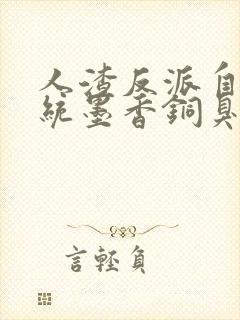 人渣反派自
統墨香銅臭
言輕負